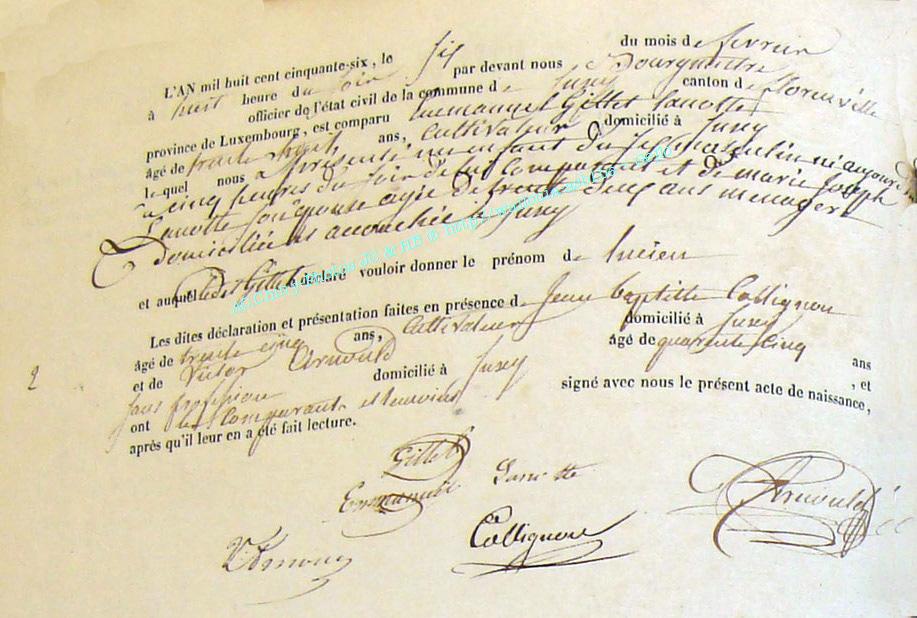 L'AN mil huit cent cinquante-six, le six du mois de fevrier
à huit heure du soir par devant nous Bourgmestre
officier de l'état civil de la commune de Juzey canton de
province de Luxembourg, est comparu Emmanuel Gillet Lanotte
âgé de trente huit ans, Cultivateur domicilié à Juzey
lequel nous a présenté un enfant du sexe masculin né aujourd'
à cinq heures du soir de lui Comparant et de marie Joseph
Lanotte son épouse agée de trente ans menagere
Domiciliée et accouchée à Juzey
et auquel Gillet a déclaré vouloir donner le prénom de lucien
Les dites déclaration et présentation faites en présence de Jean baptiste Collignon
âgé de trente cinq ans, Cultivateur domicilié à Juzey
et de Victor Arnould âgé de quarante cinq ans
sans profession domicilié à Juzey , et
ont les Comparant et temoins signé avec nous le présent acte de naissance,
après qu'il leur en a été fait lecture.
2
Gillet
Emmanuel Lanotte
Arnould
Collignon
V Arnould